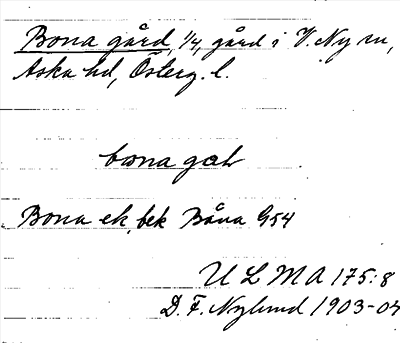 Bona gård, 1/4, gård i V. Ny sn,
Aska hd, Österg. l.
bona gał
Bona ek, bek Båna G54
ULMA 175:8
D. F. Nylund 1903-04